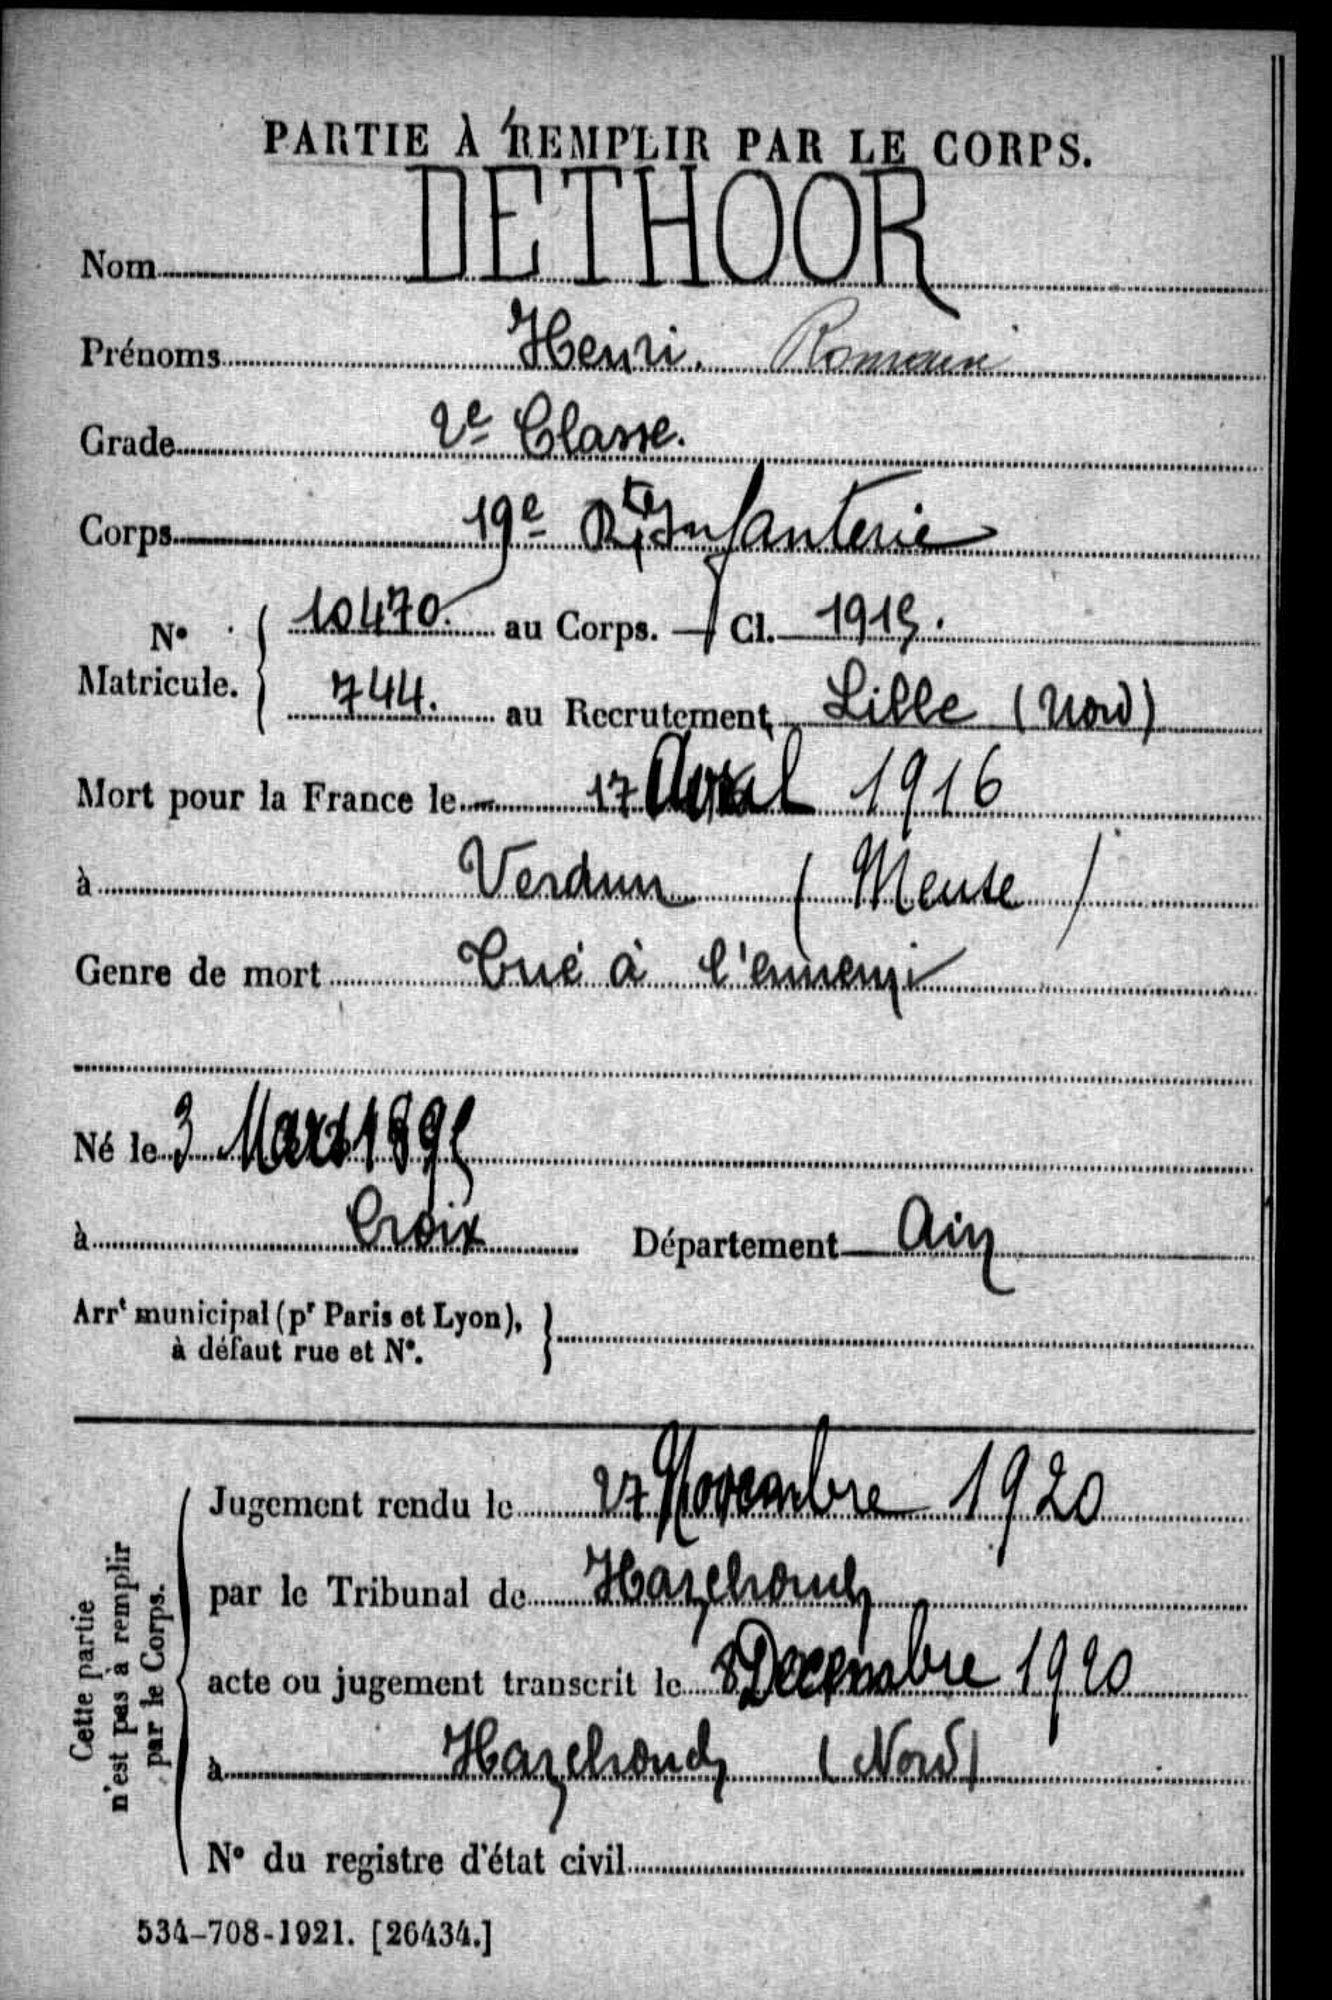 PARTIE À REMPLIR PAR LE CORPS.
Nom DETHOOR
Prénoms Henri. Romain
Grade 2e Classe.
Corps 19e Rt Infanterie
No Matricule. { 10470. au Corps. — Cl. 1915.
744. au Recrutement Lille (Nord)
Mort pour la France le 17 Avril 1916
à Verdun (Meuse)
Genre de mort Tué à l'ennemi
Né le 3 Mars 1895
à Croix Département Ain
Arrt municipal (pr Paris et Lyon), }
à défaut rue et No.
Cette partie
n'est pas à remplir
par le Corps.
Jugement rendu le 27 Novembre 1920
par le Tribunal de Hazebrouck
acte ou jugement transcrit le 8 Decembre 1920
à Hazebrouck (Nord)
No du registre d'état civil
534-708-1921. [26434.]